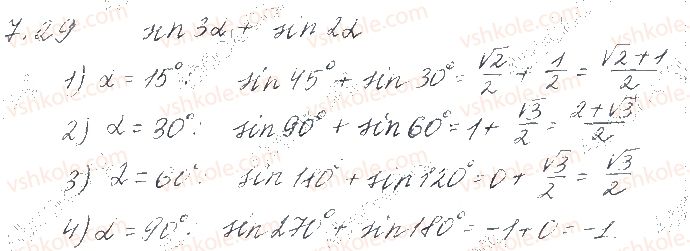 7.29 sin 3α + sin 2α
1) α = 15°: sin 45° + sin 30° = √2/2 + 1/2 = (√2+1)/2
2) α = 30°: sin 90° + sin 60° = 1 + √3/2 = (2+√3)/2
3) α = 60°: sin 180° + sin 120° = 0 + √3/2 = √3/2
4) α = 90°: sin 270° + sin 180° = -1 + 0 = -1